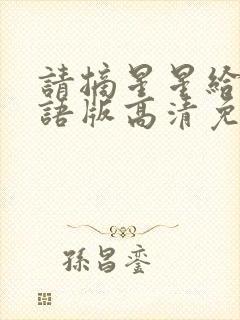 請摘星星給
語版高清免
孫昌鑾